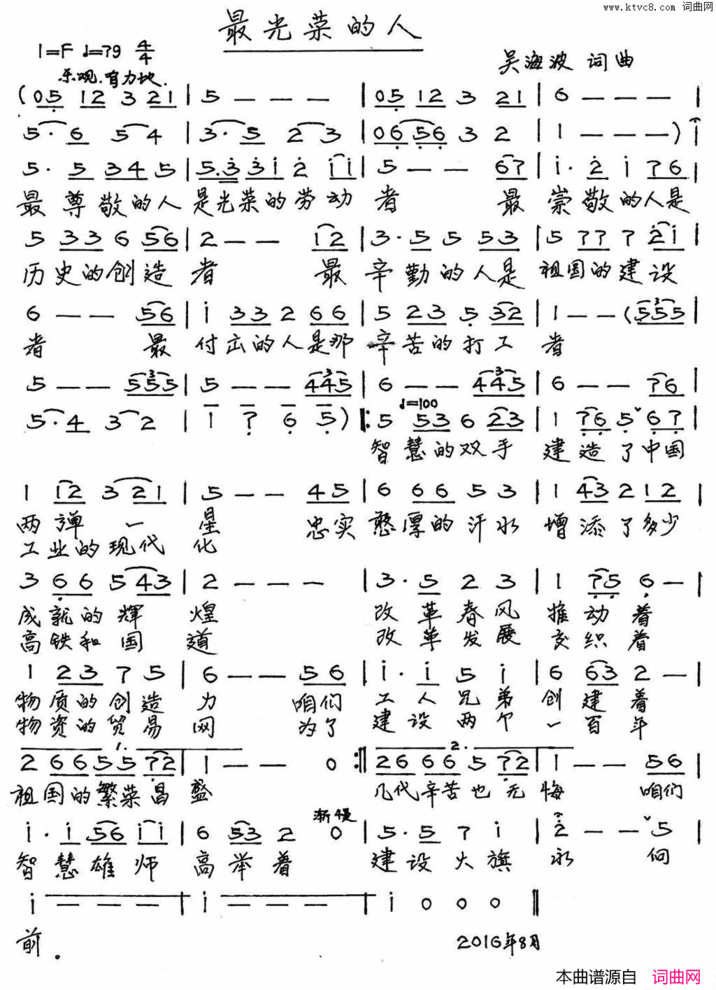 www.ktvc8.com 词曲网
最光荣的人
1=F ♩=79 4/4
吴海波 词曲
乐观.有力地.
(05 12 3 21 | 5 - - - | 05 12 3 21 | 6 - - - |
5· 6 5 4 | 3· 5 2 3 | 06 56 3 2 | 1 - - - ) |
5· 5 3 4 5 | 5.3 3 1 2 1 1 | 5 - - 6 7 | 1· 2 1 7 6 |
最尊敬的人 是光荣的劳动 者 最 崇敬的人是
5 3 3 6 5 6 | 2 - - 1 2 | 3· 5 5 5 3 | 5 7 7 7 2 1 |
历史的创造 者 最 辛勤的人是 祖国的建设
6 - - 5 6 | 1 3 3 2 6 6 | 5 2 3 5 3 2 | 1 - - (5 5 5 |
者 最 付出的人是那 辛苦的打工 者
5 - - 5 5 5 | 5 - - 4 4 5 | 6 - - 4 4 5 | 6 - - 7 6 |
♩=100
5· 4 3 2 | 1 7 6 5 ) |: 5 5 3 6 2 3 | 1 7 6 5 ˅ 6 7 |
智慧的双手 建造了中国
1 1 2 3 2 1 | 5 - - 4 5 | 6 6 6 5 3 | 1 4 3 2 1 2 |
两弹一 星 忠实 憨厚的汗水 增添了多少
工业的现代 化
3 6 6 5 4 3 | 2 - - - | 3· 5 2 3 | 1 7 5 6 - |
成就的辉 煌 改革春风 推动着
高铁和国 道 改革发展 交织着
1 2 3 7 5 | 6 - - 5 6 | 1· 1 5 1 | 6 6 3 2 - |
物质的创造 力 咱们 工人兄弟 创建着
物资的贸易 网 为了 建设两个 一百年
1. 2.
2 6 6 5 5 7 2 | 1 - - 0 :| 2 6 6 6 5 7 2 | 1 - - 5 6 |
祖国的繁荣昌 盛 几代辛苦也无 悔 咱们
渐慢
1· 1 5 6 1 1 | 6 5 3 2 0 | 5· 5 7 1 | 2 - - ˅ 5 |
智慧雄师 高举着 建设大旗 永 向
1 - - - | 1 - - - | 1 0 0 0 ‖
前。
2016年8月
本曲谱源自 词曲网